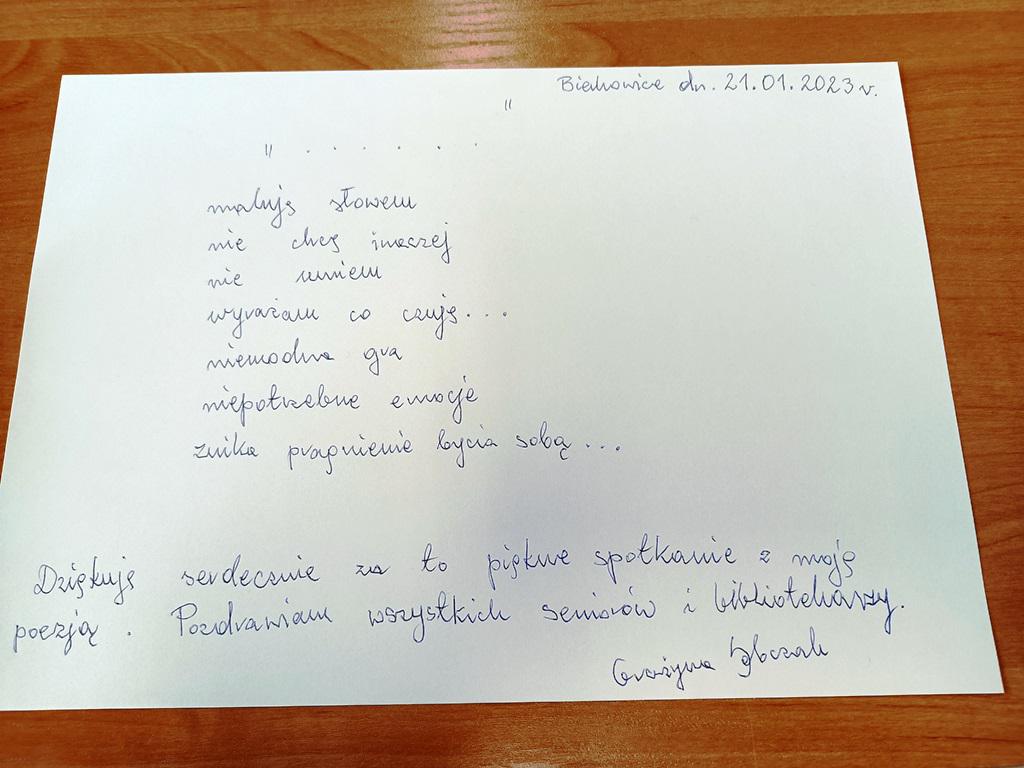 Biekowice dn. 21.01.2023 r.
" . . . . . "
maluję słowem
nie chcę inaczej
nie umiem
wyrażam co czuję...
niemodna gra
niepotrzebne emocje
znika pragnienie bycia sobą...
Dziękuję serdecznie za to piękne spotkanie z moją
poezją. Pozdrawiam wszystkich seniorów i bibliotekarzy.
Grażyna